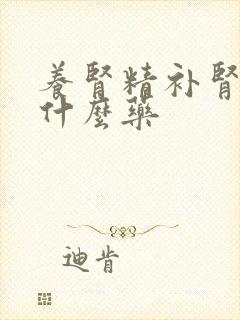 養腎精补腎
什麼藥
迪肯